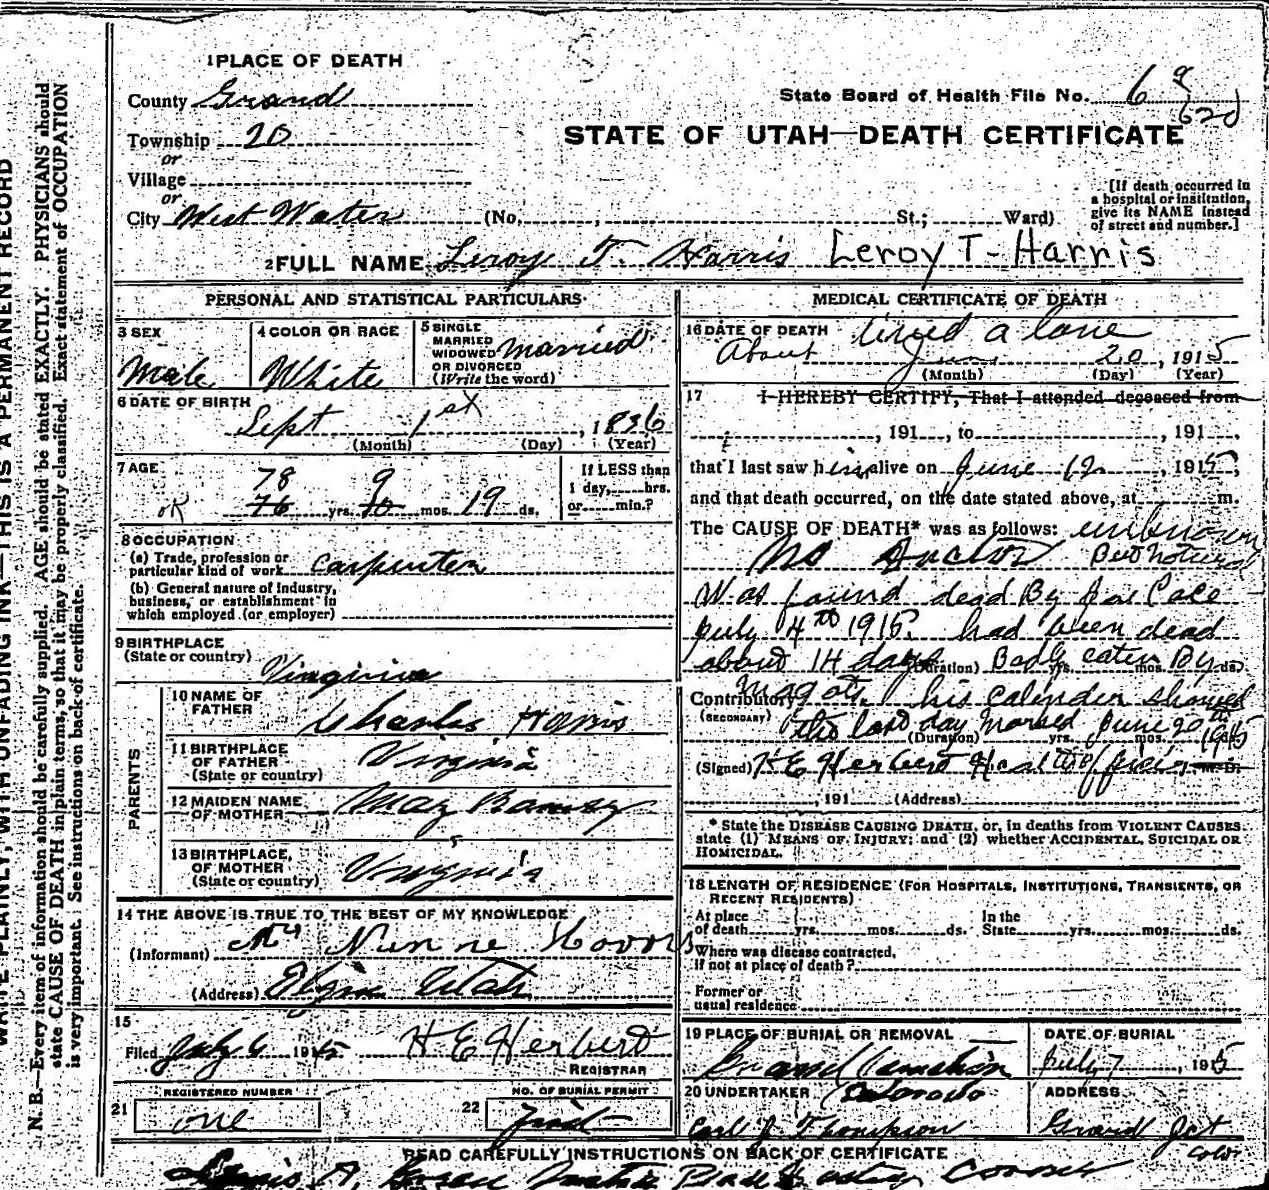 1 PLACE OF DEATH
County Grand
State Board of Health File No. 6 9
620
Township 20
STATE OF UTAH—DEATH CERTIFICATE
or
Village
or
City West Water (No. , St.; Ward)
[If death occurred in a hospital or institution, give its NAME instead of street and number.]
2 FULL NAME Leroy T. Harris Leroy T-Harris
PERSONAL AND STATISTICAL PARTICULARS
3 SEX
Male
4 COLOR OR RACE
White
5 SINGLE MARRIED WIDOWED OR DIVORCED
(Write the word)
married
6 DATE OF BIRTH
Sept 1st, 1836
(Month) (Day) (Year)
7 AGE
78 9
OK 76 yrs. 10 mos. 19 ds.
If LESS than
1 day, hrs.
or min.?
8 OCCUPATION
(a) Trade, profession or
particular kind of work Carpenter
(b) General nature of industry,
business, or establishment in
which employed (or employer)
9 BIRTHPLACE
(State or country)
Virginia
PARENTS
10 NAME OF
FATHER Charles Harris
11 BIRTHPLACE
OF FATHER
(State or country) Virginia
12 MAIDEN NAME
OF MOTHER May
13 BIRTHPLACE,
OF MOTHER
(State or country) Virginia
14 THE ABOVE IS TRUE TO THE BEST OF MY KNOWLEDGE
(Informant)
(Address) Elgin Utah
15
Filed July 6 1915 H E Herbert
REGISTRAR
REGISTERED NUMBER
21 one
NO. OF BURIAL PERMIT
22
MEDICAL CERTIFICATE OF DEATH
16 DATE OF DEATH lived a lone
About June 20, 1915
(Month) (Day) (Year)
17 I HEREBY CERTIFY, That I attended deceased from
, 191 , to , 191 ,
that I last saw him alive on June 12, 1915,
and that death occurred, on the date stated above, at m.
The CAUSE OF DEATH* was as follows: unknown
No Doctor But natural
Was found dead By Joe Pace
July 4th 1915. had been dead
about 14 days (Duration) Badly eaten By yrs. mos. ds.
Contributory magots. his calender showed
(SECONDARY)
the last day marked June 20th 1915
(Duration) yrs. mos. ds.
(Signed) H E Herbert Health officer M. D.
, 191 (Address)
* State the DISEASE CAUSING DEATH, or, in deaths from VIOLENT CAUSES,
state (1) MEANS OF INJURY; and (2) whether ACCIDENTAL, SUICIDAL OR
HOMICIDAL.
18 LENGTH OF RESIDENCE (FOR HOSPITALS, INSTITUTIONS, TRANSIENTS, OR
RECENT RESIDENTS)
At place
of death yrs. mos. ds.
In the
State yrs. mos. ds.
Where was disease contracted,
if not at place of death?
Former or
usual residence
19 PLACE OF BURIAL OR REMOVAL
Grand Junction
Colorado
DATE OF BURIAL
July 7, 1915
20 UNDERTAKER
Carl J Thompson
ADDRESS
Grand Jct
Colo
READ CAREFULLY INSTRUCTIONS ON BACK OF CERTIFICATE
WRITE PLAINLY, WITH UNFADING INK—THIS IS A PERMANENT RECORD
N. B.—Every item of information should be carefully supplied. AGE should be stated EXACTLY. PHYSICIANS should
state CAUSE OF DEATH in plain terms, so that it may be properly classified. Exact statement of OCCUPATION
is very important. See instructions on back of certificate.